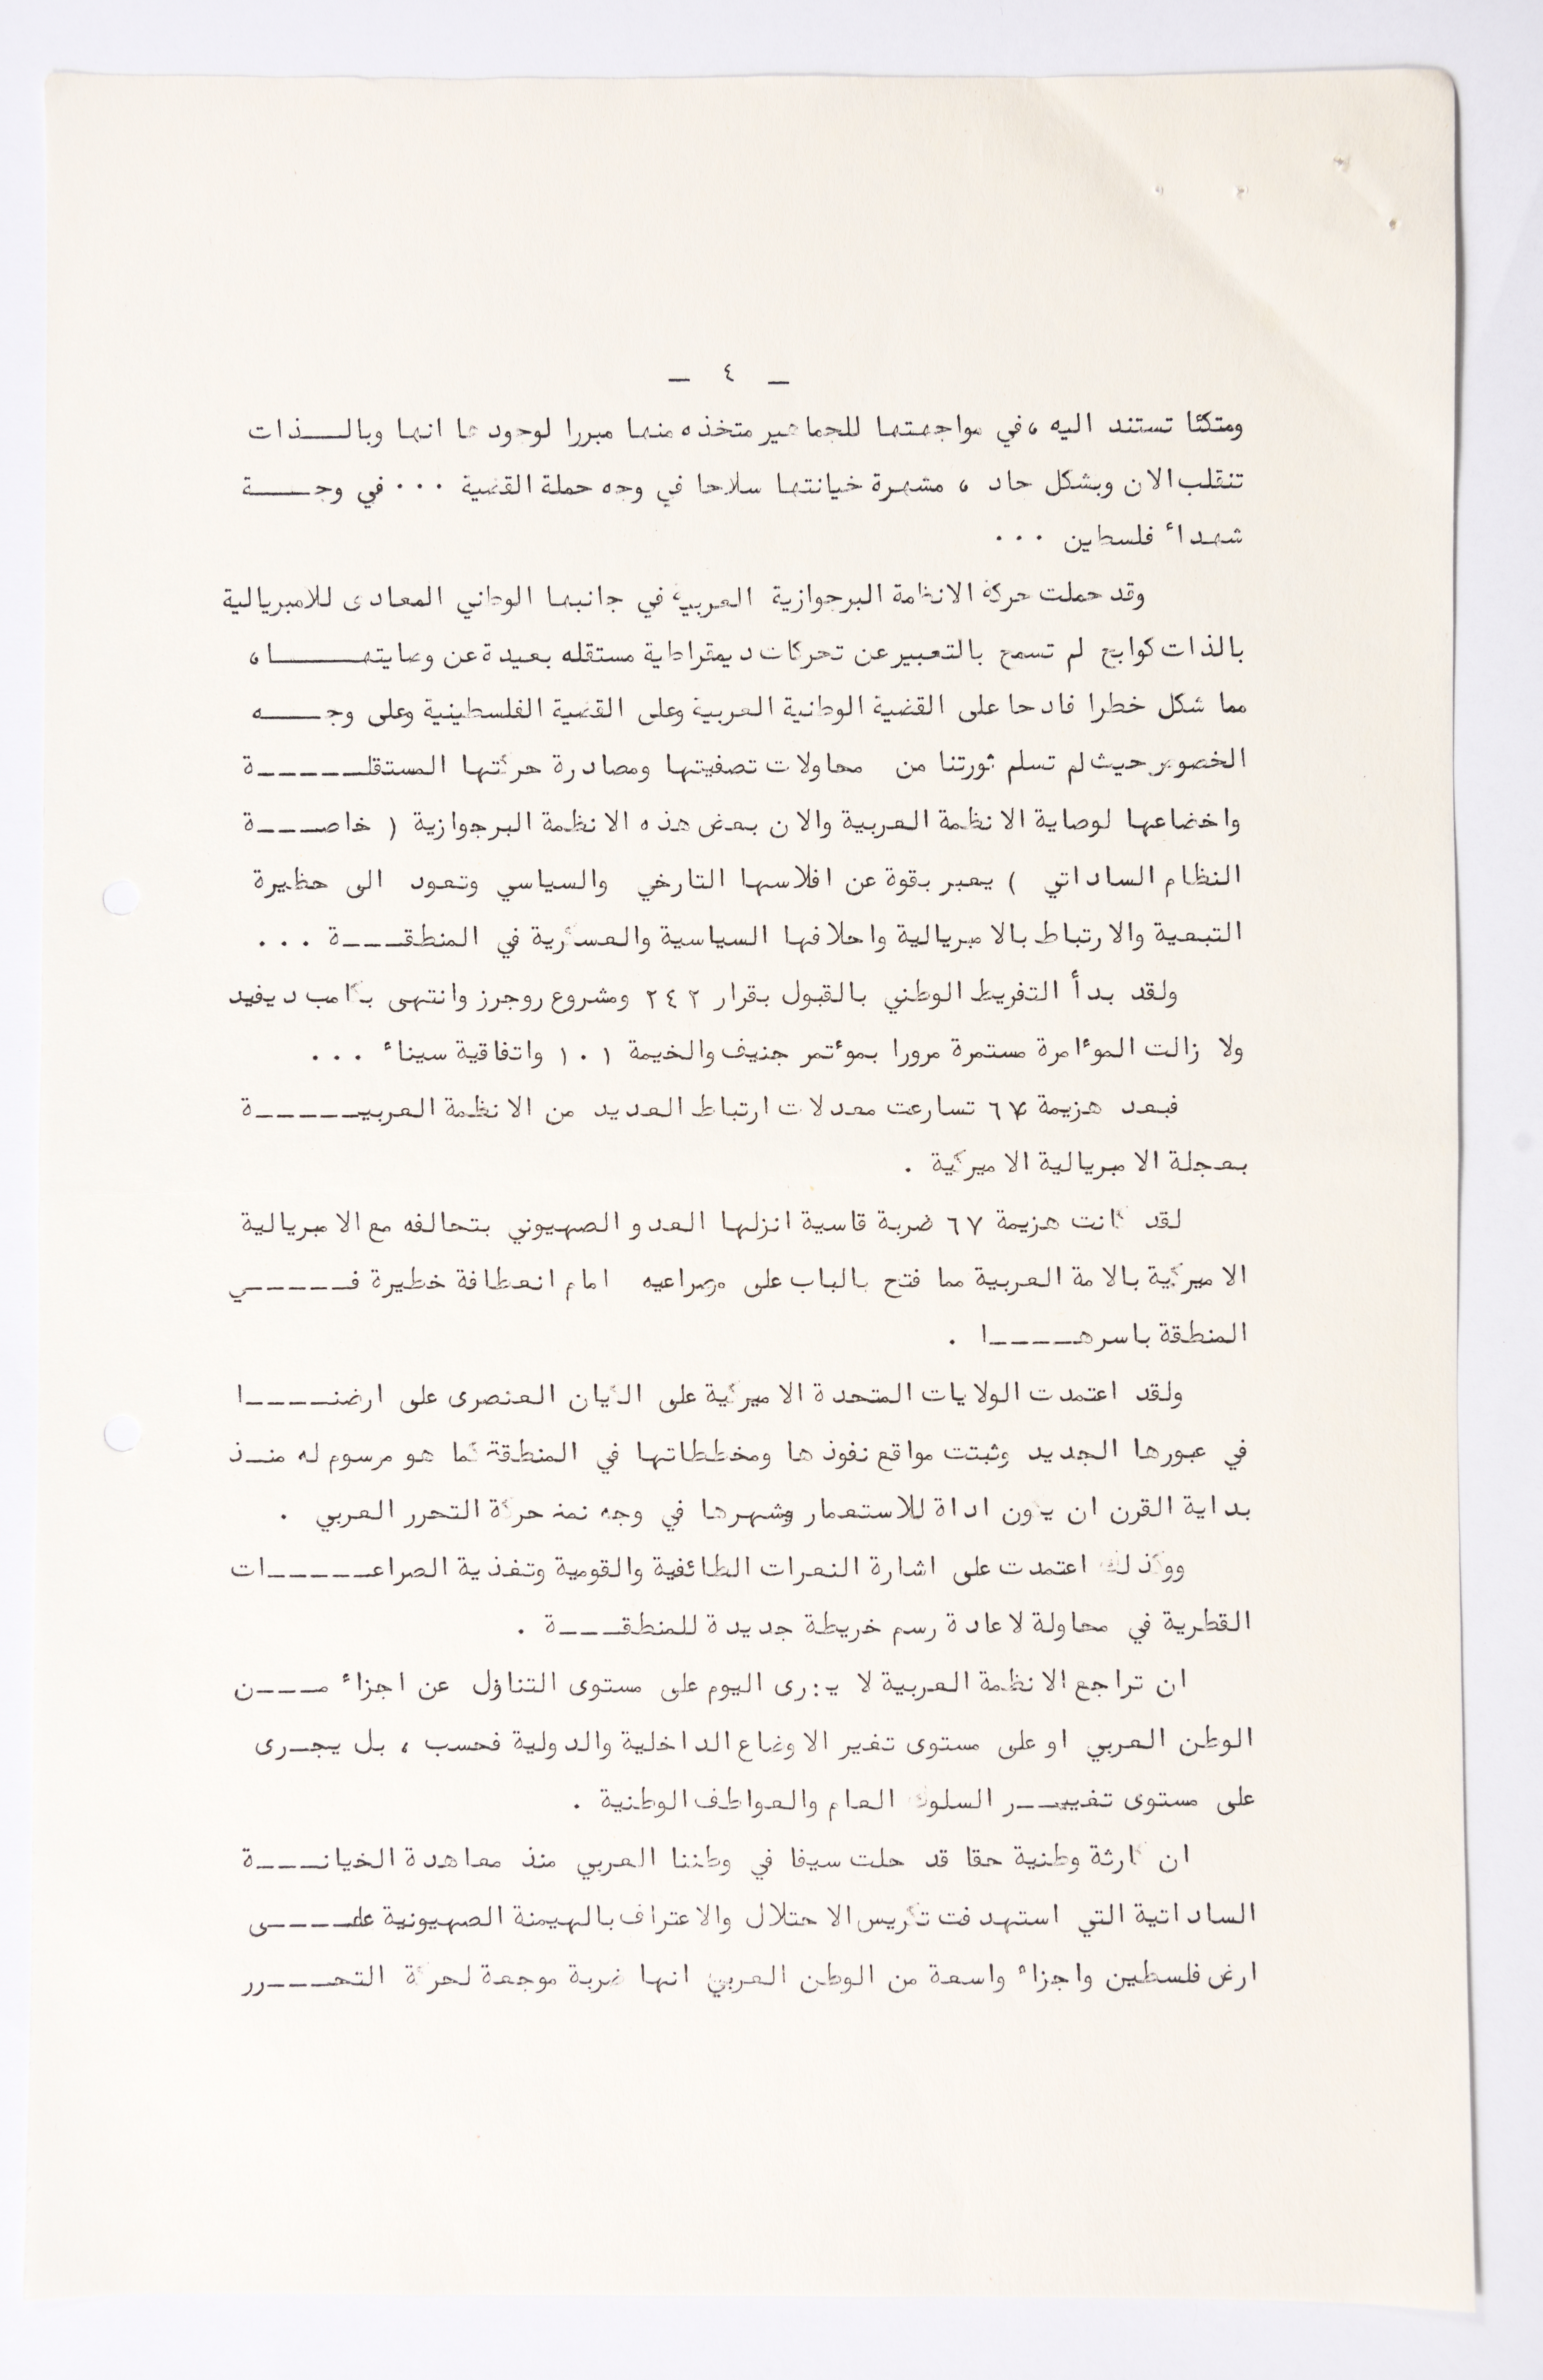 _ ٤ _
ومتكئا تستند اليه ، في مواجهتها للجماهير متخذه منها مبررا لوجودها انها وبالـــذات
تنقلب الان وبشكل حاد ، مشهرة خيانتها سلاحا في وجه حملة القضية ... في وجـــة
شهداء فلسطين ...
وقد حملت حركة الانظمة البرجوازية العربية في جانبها الوطني المعادى للامبريالية
بالذات كوابح لم تسمح بالتعبير عن تحركات ديمقراطية مستقله بعيدة عن وصايتهـــا ،
مما شكل خطرا فادحا على القضية الوطنية العربية وعلى القضية الفلسطينية وعلى وجـــه
الخصوص حيث لم تسلم ثورتنا من محاولات تصفيتها ومصادرة حركتها المستقلـــــة
واخضاعها لوصاية الانظمة العربية والان بعض هذه الانظمة البرجوازية ( خاصـــة
النظام الساداتي ) يعبر بقوة عن افلاسها التارخي والسياسي وتعود الى حظيرة
التبعية والارتباط بالامبريالية واحلافها السياسية والعسكرية في المنطقـــة ...
ولقد بدأ التفريط الوطني بالقبول بقرار ٢٤٢ ومشروع روجرز وانتهى بكامب ديفيد
ولا زالت الموءامرة مستمرة مرورا بموءتمر جنيف والخيمة ١٠١ واتفاقية سيناء ...
فبعد هزيمة ٦٧ تسارعت معدلات ارتباط العديد من الانظمة العربيـــــة
بعجلة الامبريالية الاميركية .
لقد كانت هزيمة ٦٧ ضربة قاسية انزلها العدو الصهيوني بتحالفه مع الامبريالية
الاميركية بالامة العربية مما فتح بالباب على مصراعيه امام انعطافة خطيرة فـــــي
المنطقة باسرهـــــا .
ولقد اعتمدت الولايات المتحدة الاميركية على الكيان العنصرى على ارضنــــا
في عبورها الجديد وثبتت مواقع نفوذها ومخططاتها في المنطقة كما هو مرسوم له منـذ
بداية القرن ان يكون اداة للاستعمار وشهرها في وجه حركة التحرر العربي .
ووكذلك اعتمدت على اشارة النعرات الطائفية والقومية وتغذية الصراعـــــات
القطرية في محاولة لاعادة رسم خريطة جديدة للمنطقـــة .
ان تراجع الانظمة العربية لا يجرى اليوم على مستوى التناؤل عن اجزاء مـــن
الوطن العربي او على مستوى تغير الاوضاع الداخلية والدولية فحسب ، بل يجـرى
على مستوى تغييـــر السلوك العام والعواطف الوطنية .
ان كارثة وطنية حقا قد حلت سيفا في وطننا العربي منذ معاهدة الخيانـــة
الساداتية التي استهدفت تكريس الاحتلال والاعتراف بالهيمنة الصهيونية علــــى
ارض فلسطين واجزاء واسعة من الوطن العربي انها ضربة موجعة لحركة التحـــرر